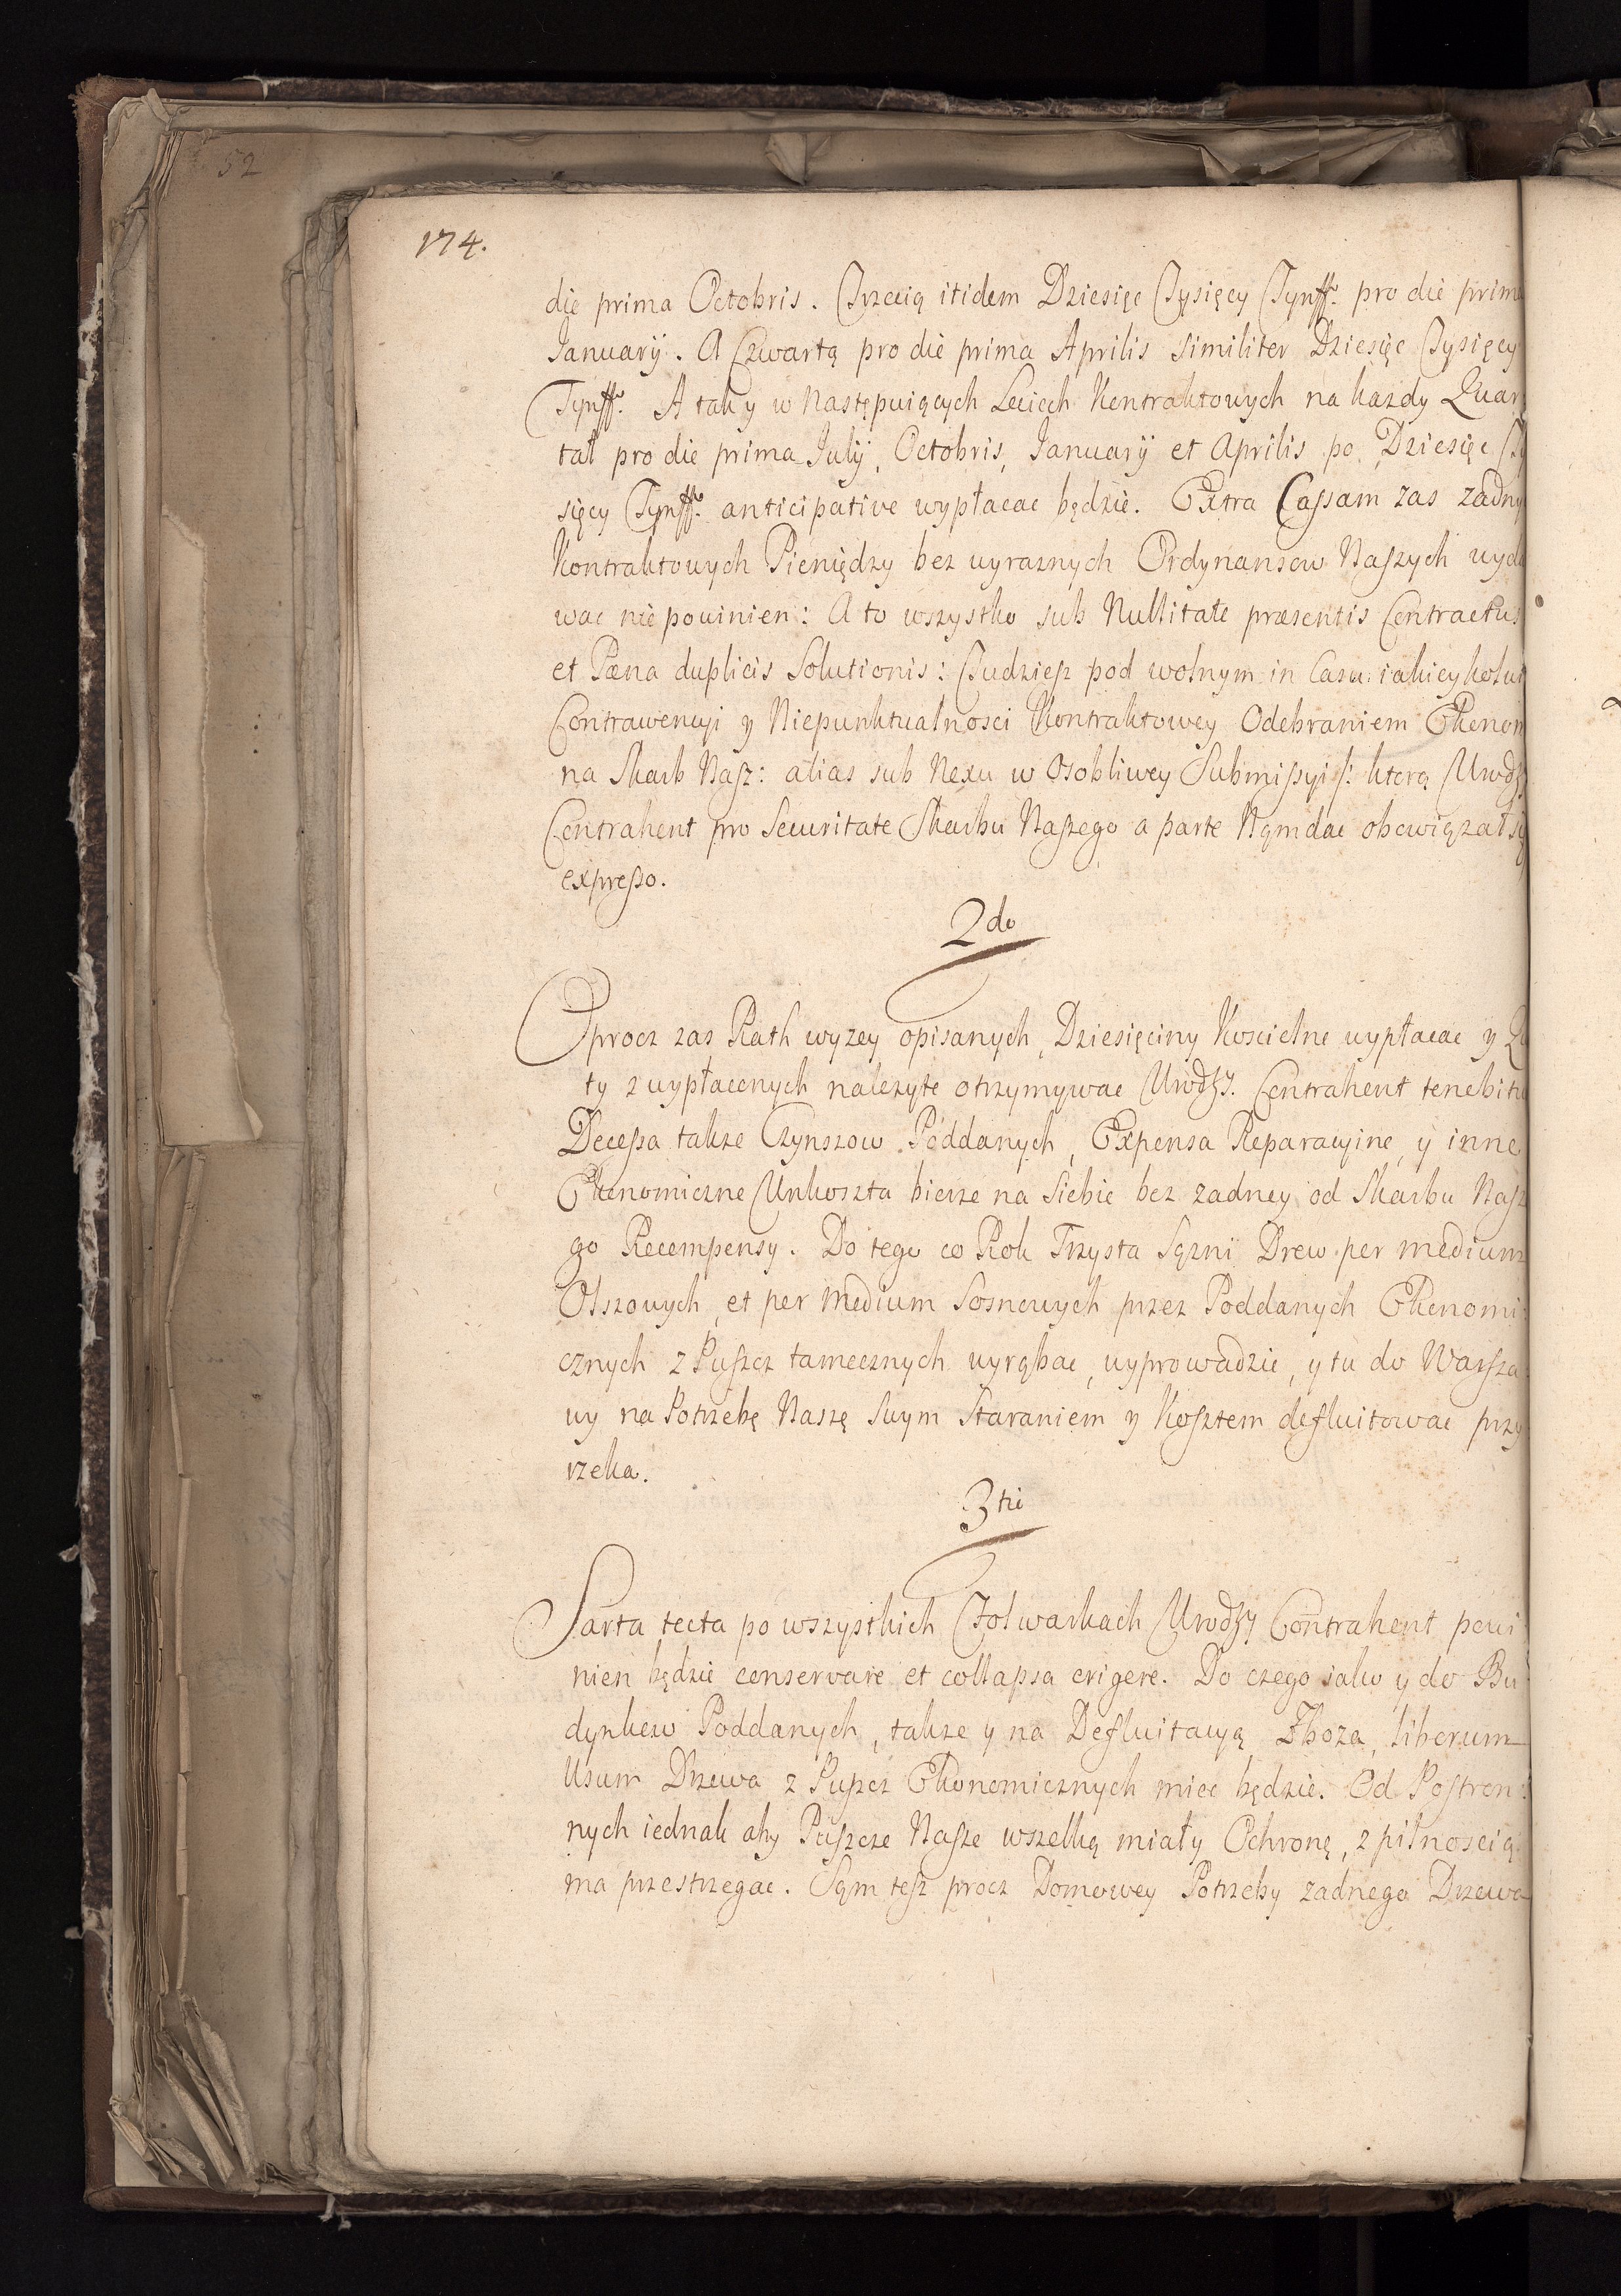 52
174.
die prima Octobris. Trzecią itidem Dziesięc Tysięcy Tynff. pro die prima
January. A Czwartą pro die prima Aprilis similiter Dziesięc Tysięcy
Tynff. A tak y w następuiących Leciech Kontraktowych na kazdy Quar
tał pro die prima July, Octobris, January et Aprilis po Dziesięc Ty
sięcy Tynff. anticipative wypłacac będzie. Extra Cassam zas zadny
Kontraktowych Pieniędzy bez wyraznych Ordynansow Naszych wyda
wac nie powinien: A to wszystko sub Nullitate præsentis Contractus
et Pæna duplicis Solutionis: Tudziesz pod wolnym in Casu iakieykolwi
Contrawencyi y Niepunktualnosci Kontraktowey Odebraniem Ekonom
na Skarb Nasz: alias sub Nexu w Osobliwey Submissyi /: ktorą Urodzy
Contrahent pro Securitate Skarbu Naszego a parte Nąm dac obowiązał się
expresso.
2do
Oprocz zas Rath wyzey opisanych, Dziesięciny Koscielne wypłacac y Qu
ty z wypłaconych nalezyte otrzymywac Urodzy. Contrahent tenebitur
Decessa takze Czynszow Poddanych, Expensa Reparacyine, y inne
Ekonomiczne Unkoszta bierze na Siebie bez zadney od Skarbu Nasz
go Recompensy. Do tego co Rok Trzysta Sązni Drew per medium
Olszowych, et per medium Sosnowych przez Poddanych Ekonomi
cznych z Puszcz tamecznych wyrąbac, wyprowadzic, y tu do Warsza
wy na Potrzebę Naszę Swym Staraniem y Kosztem defluitowac przy
rzeka.
3tio
Sarta tecta po wszystkich Folwarkach Urodzy Contrahent powi
nien będzie conservare et collapsa erigere. Do czego iako y do Bu
dynkow Poddanych, takze y na Defluitacyą Zboza, liberum
Usum Drzewa z Puszcz Ekonomicznych miec będzie. Od Postron:
nych iednak aby Puszcze Nasze wszelką miały Ochronę, z pilnoscią
ma przestrzegac. Sąm tesz procz Domowey Potrzeby zadnego Drzewa